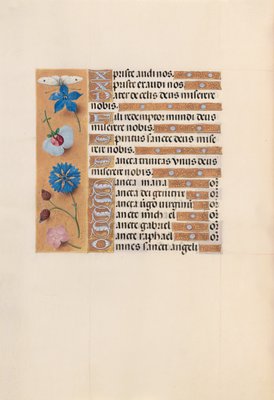 Xpriste audi nos.
Xpriste exaudi nos.
Pater de celis deus miserere
nobis.
Fili redemptor mundi deus
miserere nobis.
Spiritus sancte deus mise
rere nobis.
Sancta trinitas vnus deus
miserere nobis.
Sancta maria or
Sancta dei genitrix or
Sancta virgo virginum or
Sancte michael or
Sancte gabriel or
Sancte raphael or
Omnes sancti angeli